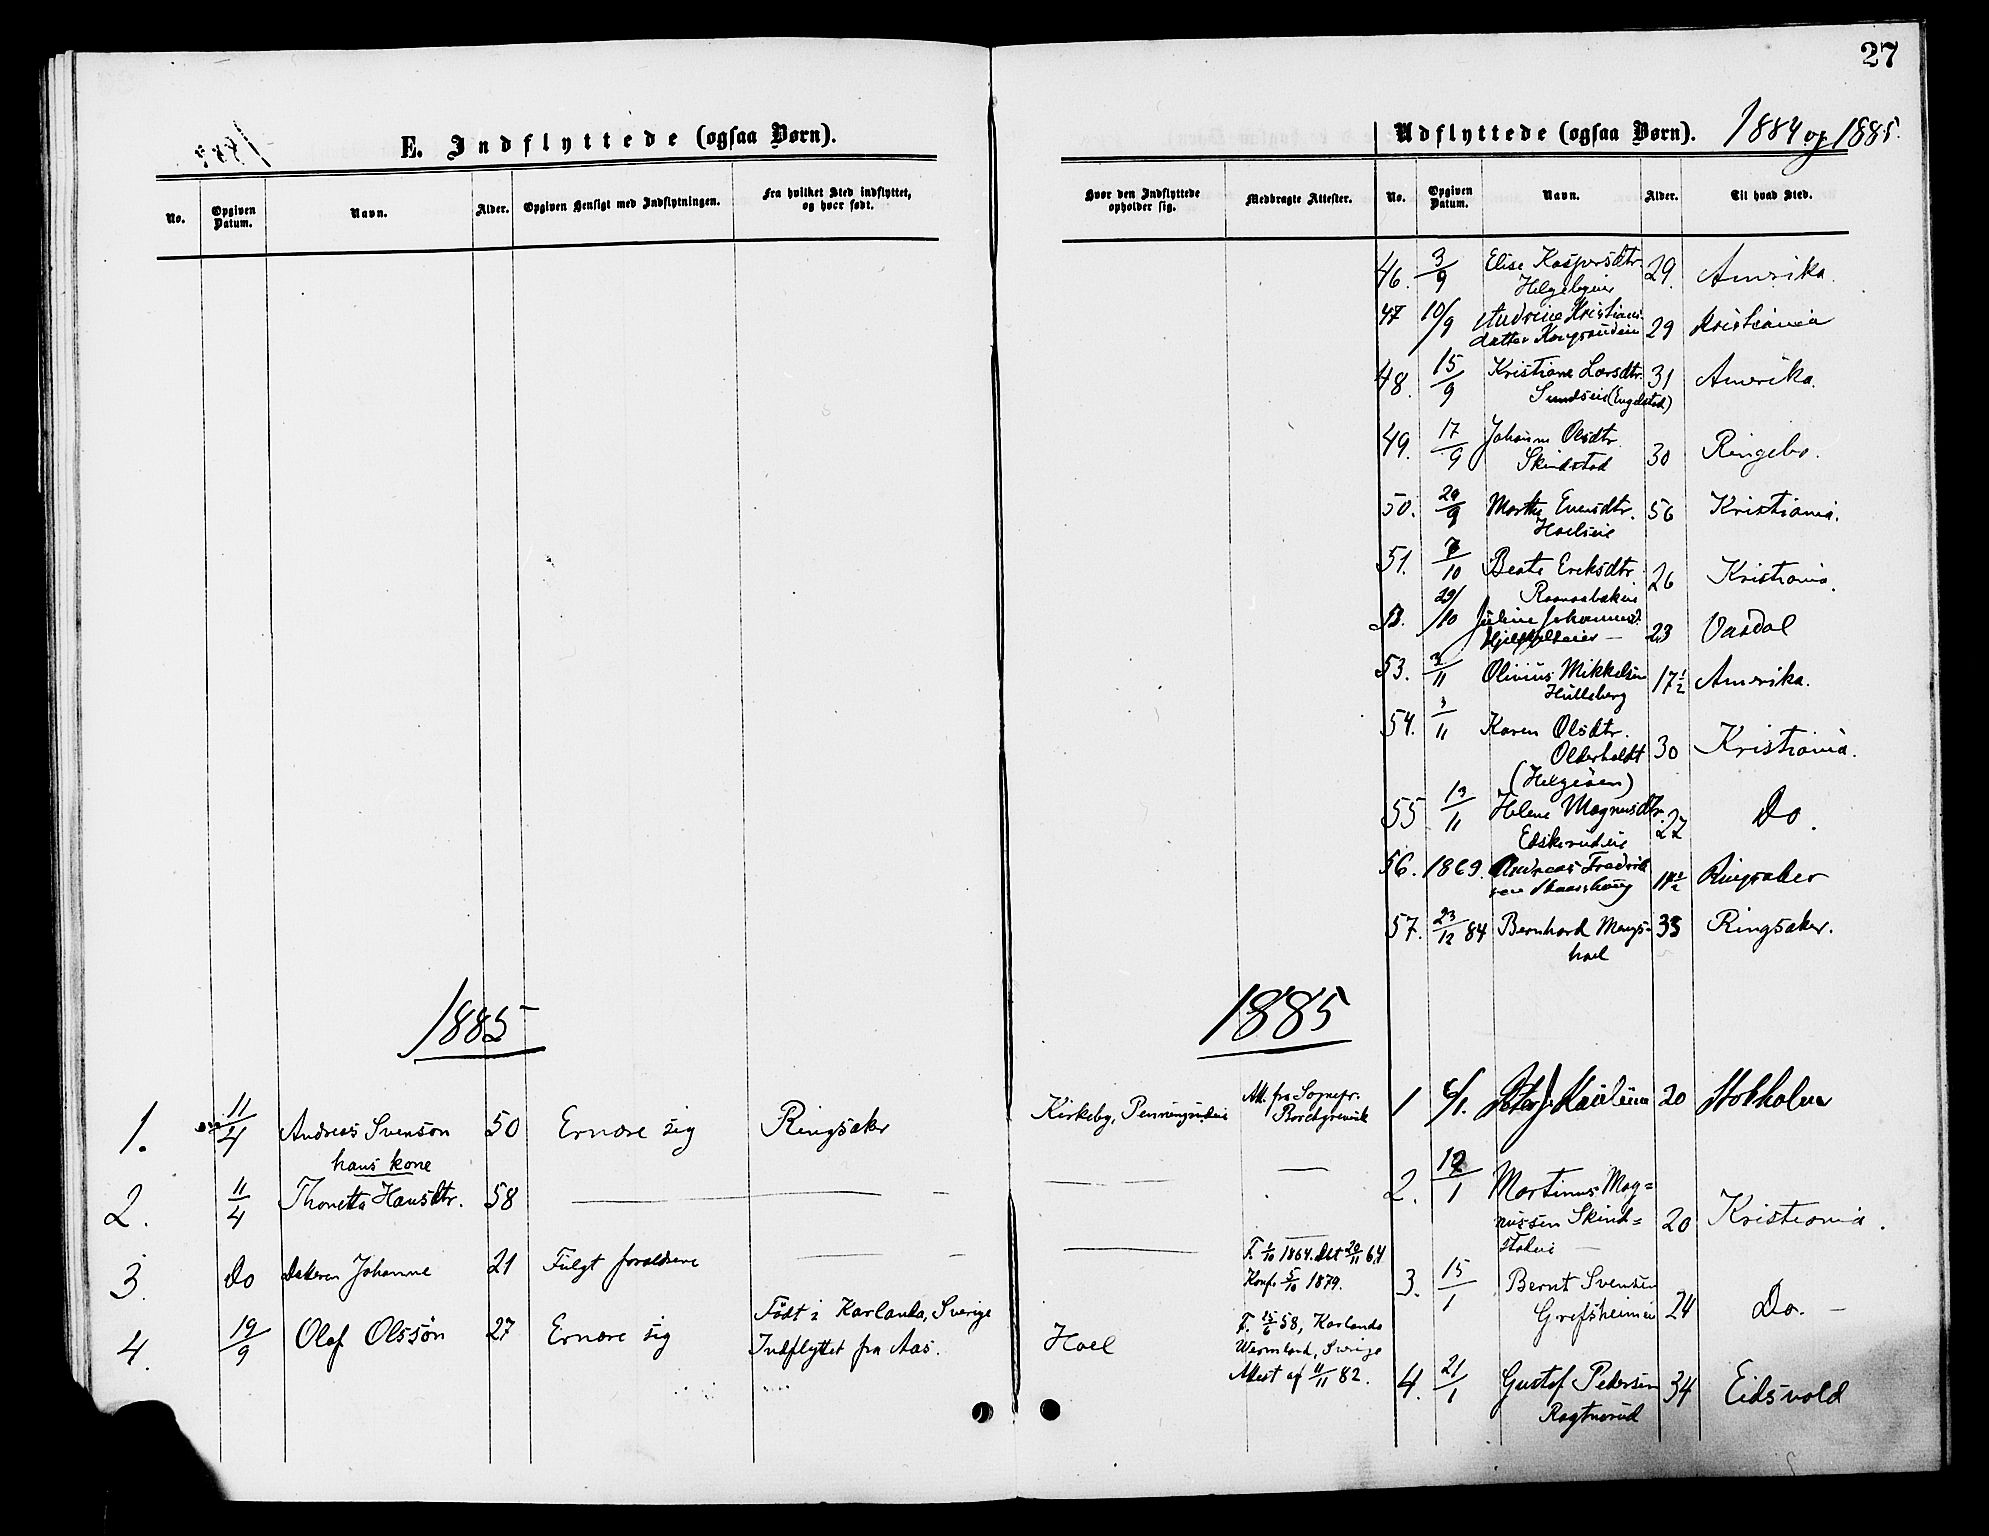 27
1884 og 1885.
E. Indflyttede (ogsaa Børn).
Udflyttede (ogsaa Børn).
No.
Opgiven Datum.
Navn.
Alder.
Opgiven Hensigt med Indflytningen.
Fra hvilket Sted indflyttet, og hvor født.
Hvor den Indflyttede opholder sig.
Medbragte Attester.
No.
Opgiven Datum.
Navn.
Alder.
Til hvad Sted.
46. 3/9 Elise Kaspersdtr. 29. Amerika.
47 10/9 Andrine Kristians-
datter 29 Kristiania
48. 15/9 Kristiane Larsdtr. 31 Amerika.
(Engelstad)
49. 17/9 Johanne Olsdtr.
Skindstad 30 Ringebo.
50. 29/9 Marthe Evensdtr. 56 Kristiania.
Hoelseie
51. 7/10 Beate Eriksdtr. 26 Kristiania.
52. 29/10 Juline 23 Vardal
53. 3/11 Olivius Mikkelsen 17½ Amerika.
Hulleberg
54. 3/11 Karen Olsdtr.
Olderholdt 30 Kristiania.
(Helgeøen)
55 13/11 Helene Magnusdtr. 27 Do.
56. 1869. Andreas Fredrik
sen Ringsaker
57. 23/12 84 Bernhard Mengs- 33 Ringsaker.
hoel
1885
1885
1. 11/4 Andreas Svenson 50 Ernære sig Ringsaker Kirkeby, Att. fra Sognepr.
Borchgrevink
hans kone
2. 11/4 Thonetta Hansdtr. 58
3. Do Datteren Johanne 21 Fulgt forældrene F. 1/10 1864. Døbt 20/11 64
Konf. 5/10 1879.
4. 19/9 Olof Olssøn 27 Ernære sig Født i Karlanda, Sverige
Indflyttet fra Aas. Hoel F. 15/6 58, Karlanda
Wermland, Sverige
Attest af 11/11 82.
1 6/1. 20 Stokholm
2. 12/1 Martinus Mag=
nussen Skind= 20 Kristiania.
stadeie
3. 15/1 Bernt Svensen
Grefsheimeie 24 Do.
4. 21/1 Gustaf Pedersen 34 Eidsvold